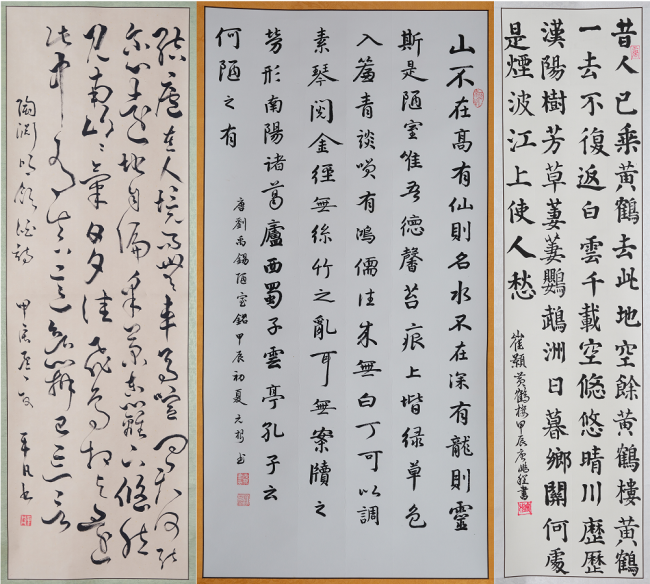 昔人已乘黃鶴去此地空餘黃鶴樓黃鶴
一去不復返白雲千載空悠悠晴川歷歷
漢陽樹芳草萋萋鸚鵡洲日暮鄉關何處
是煙波江上使人愁
崔顥黃鶴樓甲辰書
山不在高有仙則名水不在深有龍則靈
斯是陋室唯吾德馨苔痕上堦緑草色
入簾青談咲有鴻儒往来無白丁可以調
素琴閱金經無絲竹之亂耳無案牘之
勞形南陽诸葛廬西蜀子雲亭孔子云
何陋之有
唐劉禹錫陋室銘甲辰初夏书
結廬在人境而無車馬喧問君何能
爾心遠地自偏采菊東籬下悠然
見南山々氣日夕佳飛鳥相與還
此中有真意欲辨已忘言
陶淵明飲酒詩